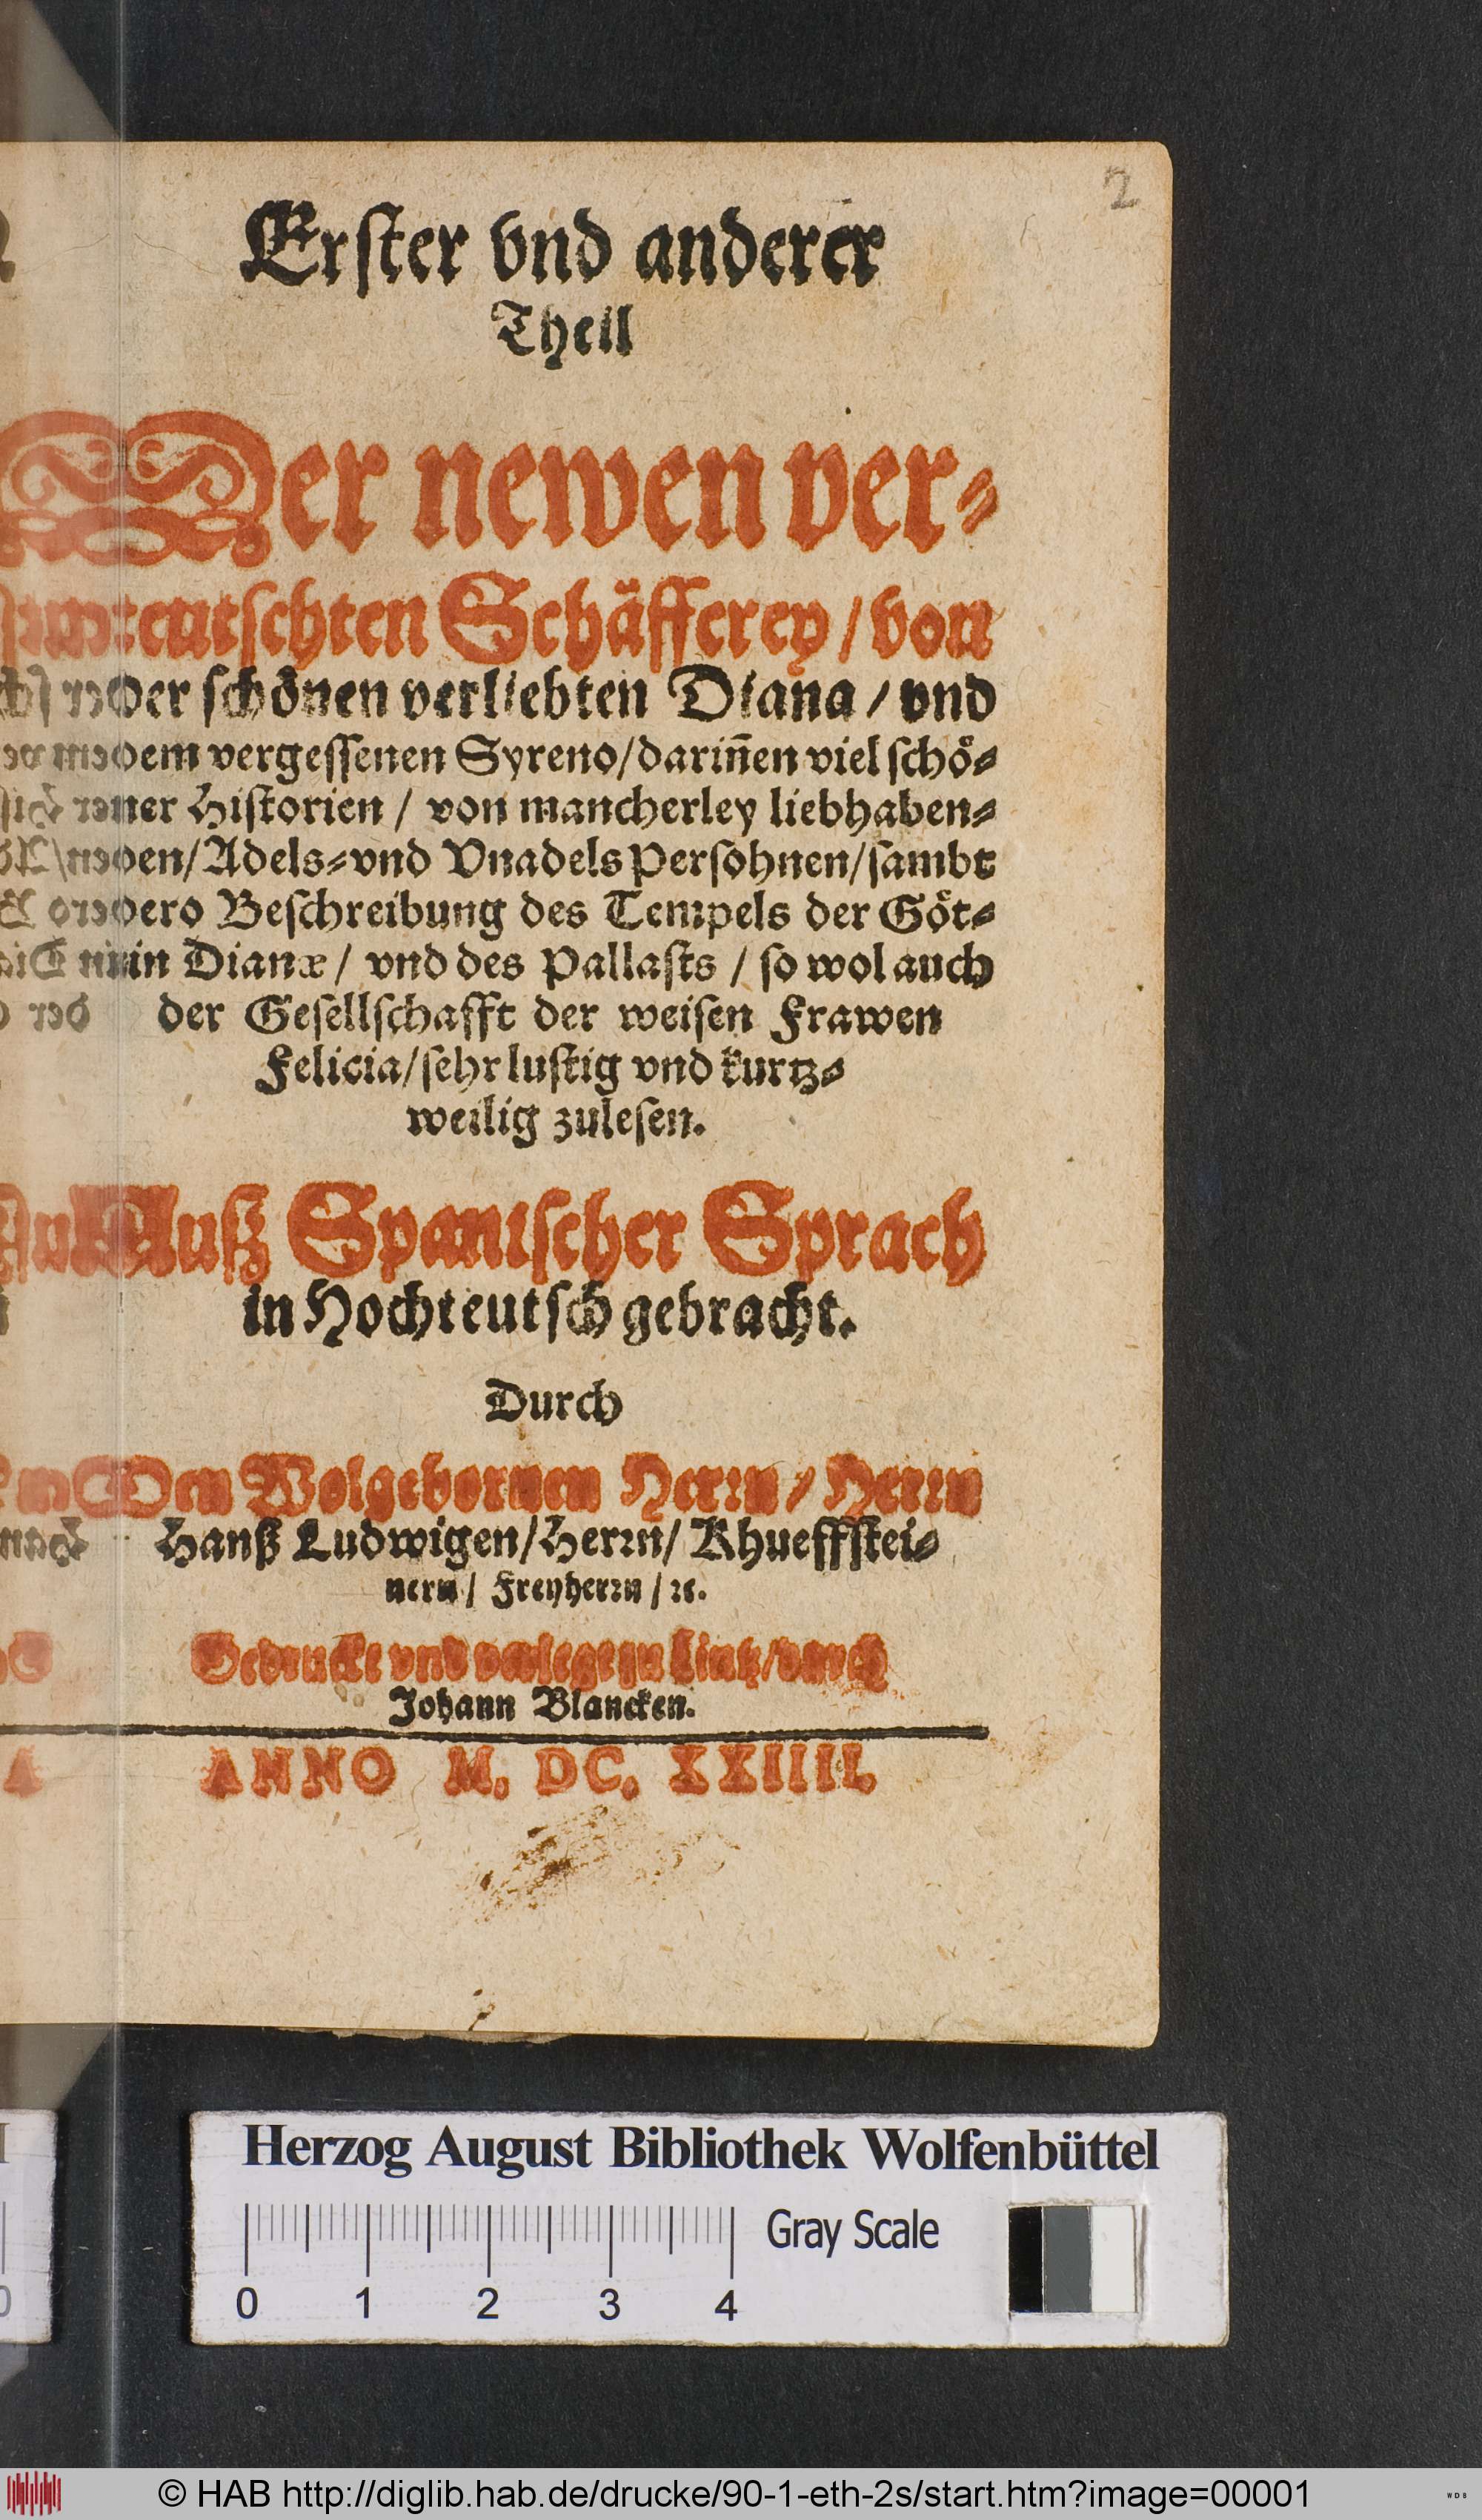 2
Erster vnd anderer
Theil
Der newen ver⸗
teutschten Schäfferey / von
der schönen verliebten Diana / vnd
dem vergessenen Syreno / dariñen viel schö⸗
ner Historien / von mancherley liebhaben⸗
den / Adels⸗vnd Vnadels Persohnen / sambt
dero Beschreibung des Tempels der Göt⸗
in Dianæ / vnd des Pallasts / so wol auch
der Gesellschafft der weisen Frawen
Felicia / sehr lustig vnd kurtz⸗
weilig zulesen.
Auß Spanischer Sprach
in Hochteutsch gebracht.
Durch
Den Wolgebornen Herrn / Herrn
Hanß Ludwigen / Herrn / Khueffstei⸗
nern / Freyherrn / ꝛc.
Gedruckt vnd verlegt zu Lintz / durch
Johann Blancken.
ANNO M. DC. XXIIII.
Herzog August Bibliothek Wolfenbüttel
Gray Scale
0 1 2 3 4
© HAB http://diglib.hab.de/drucke/90-1-eth-2s/start.htm?image=00001
WDB